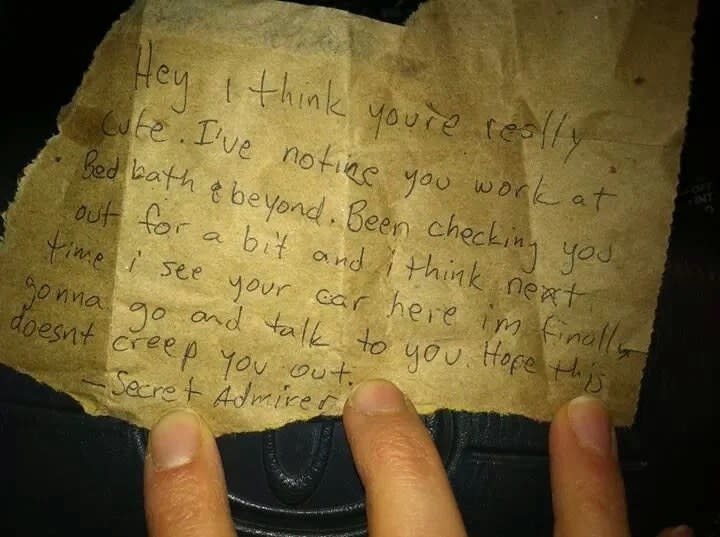 Hey i think you're really
cute. I've notine you work at
Bed bath & beyond. Been checking you
out for a bit and i think next
time i see your car here im finally
gonna go and talk to you. Hope this
doesnt creep you out.
- Secret Admirer